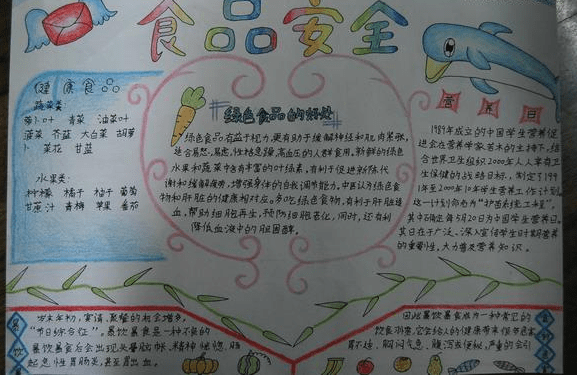 食品安全
健康食品
蔬菜类:
萝卜叶 青菜 油菜叶
菠菜 芥蓝 大白菜 胡萝
卜 菜花 甘蓝
水果类:
柠檬 橘子 柚子 葡萄
甘蔗汁 青梅 苹果 番茄
绿色食品的好处
绿色食品有益于视力,更有助于缓解神经和肌肉紧张,
适合易怒、易虑,性格急躁,高血压的人群食用。新鲜的绿色
水果和蔬菜中含有丰富的叶绿素,有利于促进新陈代
谢和缓解疲劳,增强身体的自我调节能力。中医认为绿色食
物和肝脏的健康相对应。多吃绿色食物,有利于肝脏造
血,帮助细胞再生,预防细胞老化,同时,还有利
降低血液中的胆固醇。
营养日
1989年成立的中国学生营养促
进会在营养学家于若木的主持下,结
合世界卫生组织2000年人人享有卫
生保健的战略目标,制定了19
91年至2000年10年学生营养工作计划
这一计划命名为“护苗系统工程”,
其中确定每5月20日为中国学生营养日。
其目在于广泛、深入宣传学生时期营养
的重要性,大力普及营养知识。
岁末年初,宴请、聚餐的机会增多,
“节日综合症”。暴饮暴食是一种不良的
暴饮暴食后会出现头晕脑胀、精神恍惚、肠
起急性胃肠炎,甚至胃出血。
因此暴饮暴食成为一种常见的
饮食习惯,它会给人的健康带来很多危害
胃不适、胸闷气急、腹泻或便秘,严重的会引